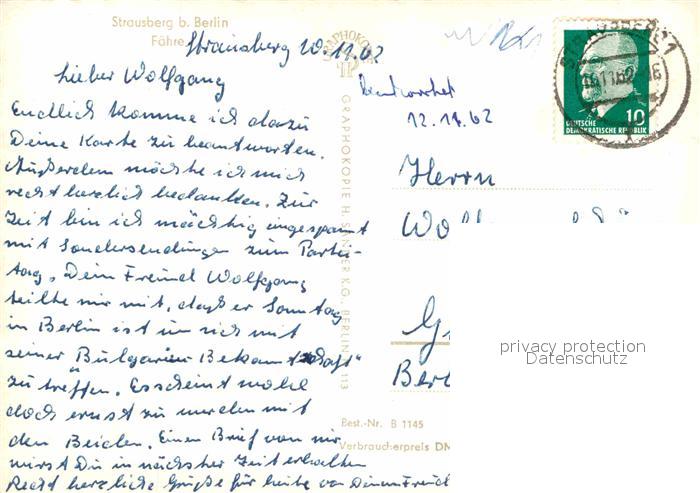 Strausberg b. Berlin
Fähre
Strausberg 10.11.62
Lieber Wolfgang
Endlich komme ich dazu
Deine Karte zu beantworten.
Außerdem möchte ich mich
recht herzlich bedanken. Zur
Zeit bin ich mächtig eingespannt
mit Sondersendungen zum Partei-
tag. Dein Freund Wolfgang
teilte mir mit, daß er Sonntag
in Berlin ist um sich mit
seiner Bulgarien Bekanntschaft"
zu treffen. Es scheint wohl
doch ernst zu werden mit
den Beiden. Einen Brief von mir
wirst Du in nächster Zeit erhalten
Recht herzliche Grüße für heute von Deinem Freund
GRAPHOKOPIE H. SANDER KG. BERLIN
Beantwortet
12.11.62
STRAUSBERG 1
DEUTSCHE
DEMOKRATISCHE REPUBLIK
10
Herrn
Wo
G
Berl
privacy protection
Datenschutz
Best.-Nr. B 1145
Verbraucherpreis DM